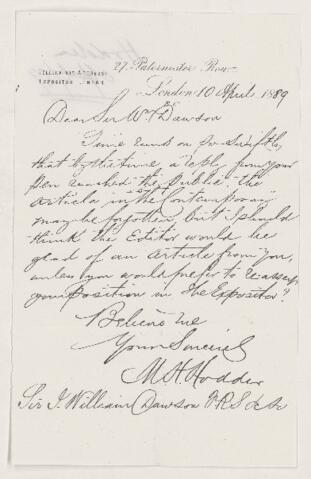 27, Paternoster Row
London 10 April 1889
Dear Sir Wm Dawson
Time runs on so swiftly
that by the time a reply from your
pen reached the public the
Article in the Contemporary
may be forgotten, but I should
think the Editor would be
glad of an article from you,
unless you would prefer to reassert
your position in the Expositor?
Believe me
Yours Sincerely
M. H. Hodder
Sir J. William Dawson F.R.S &c &c